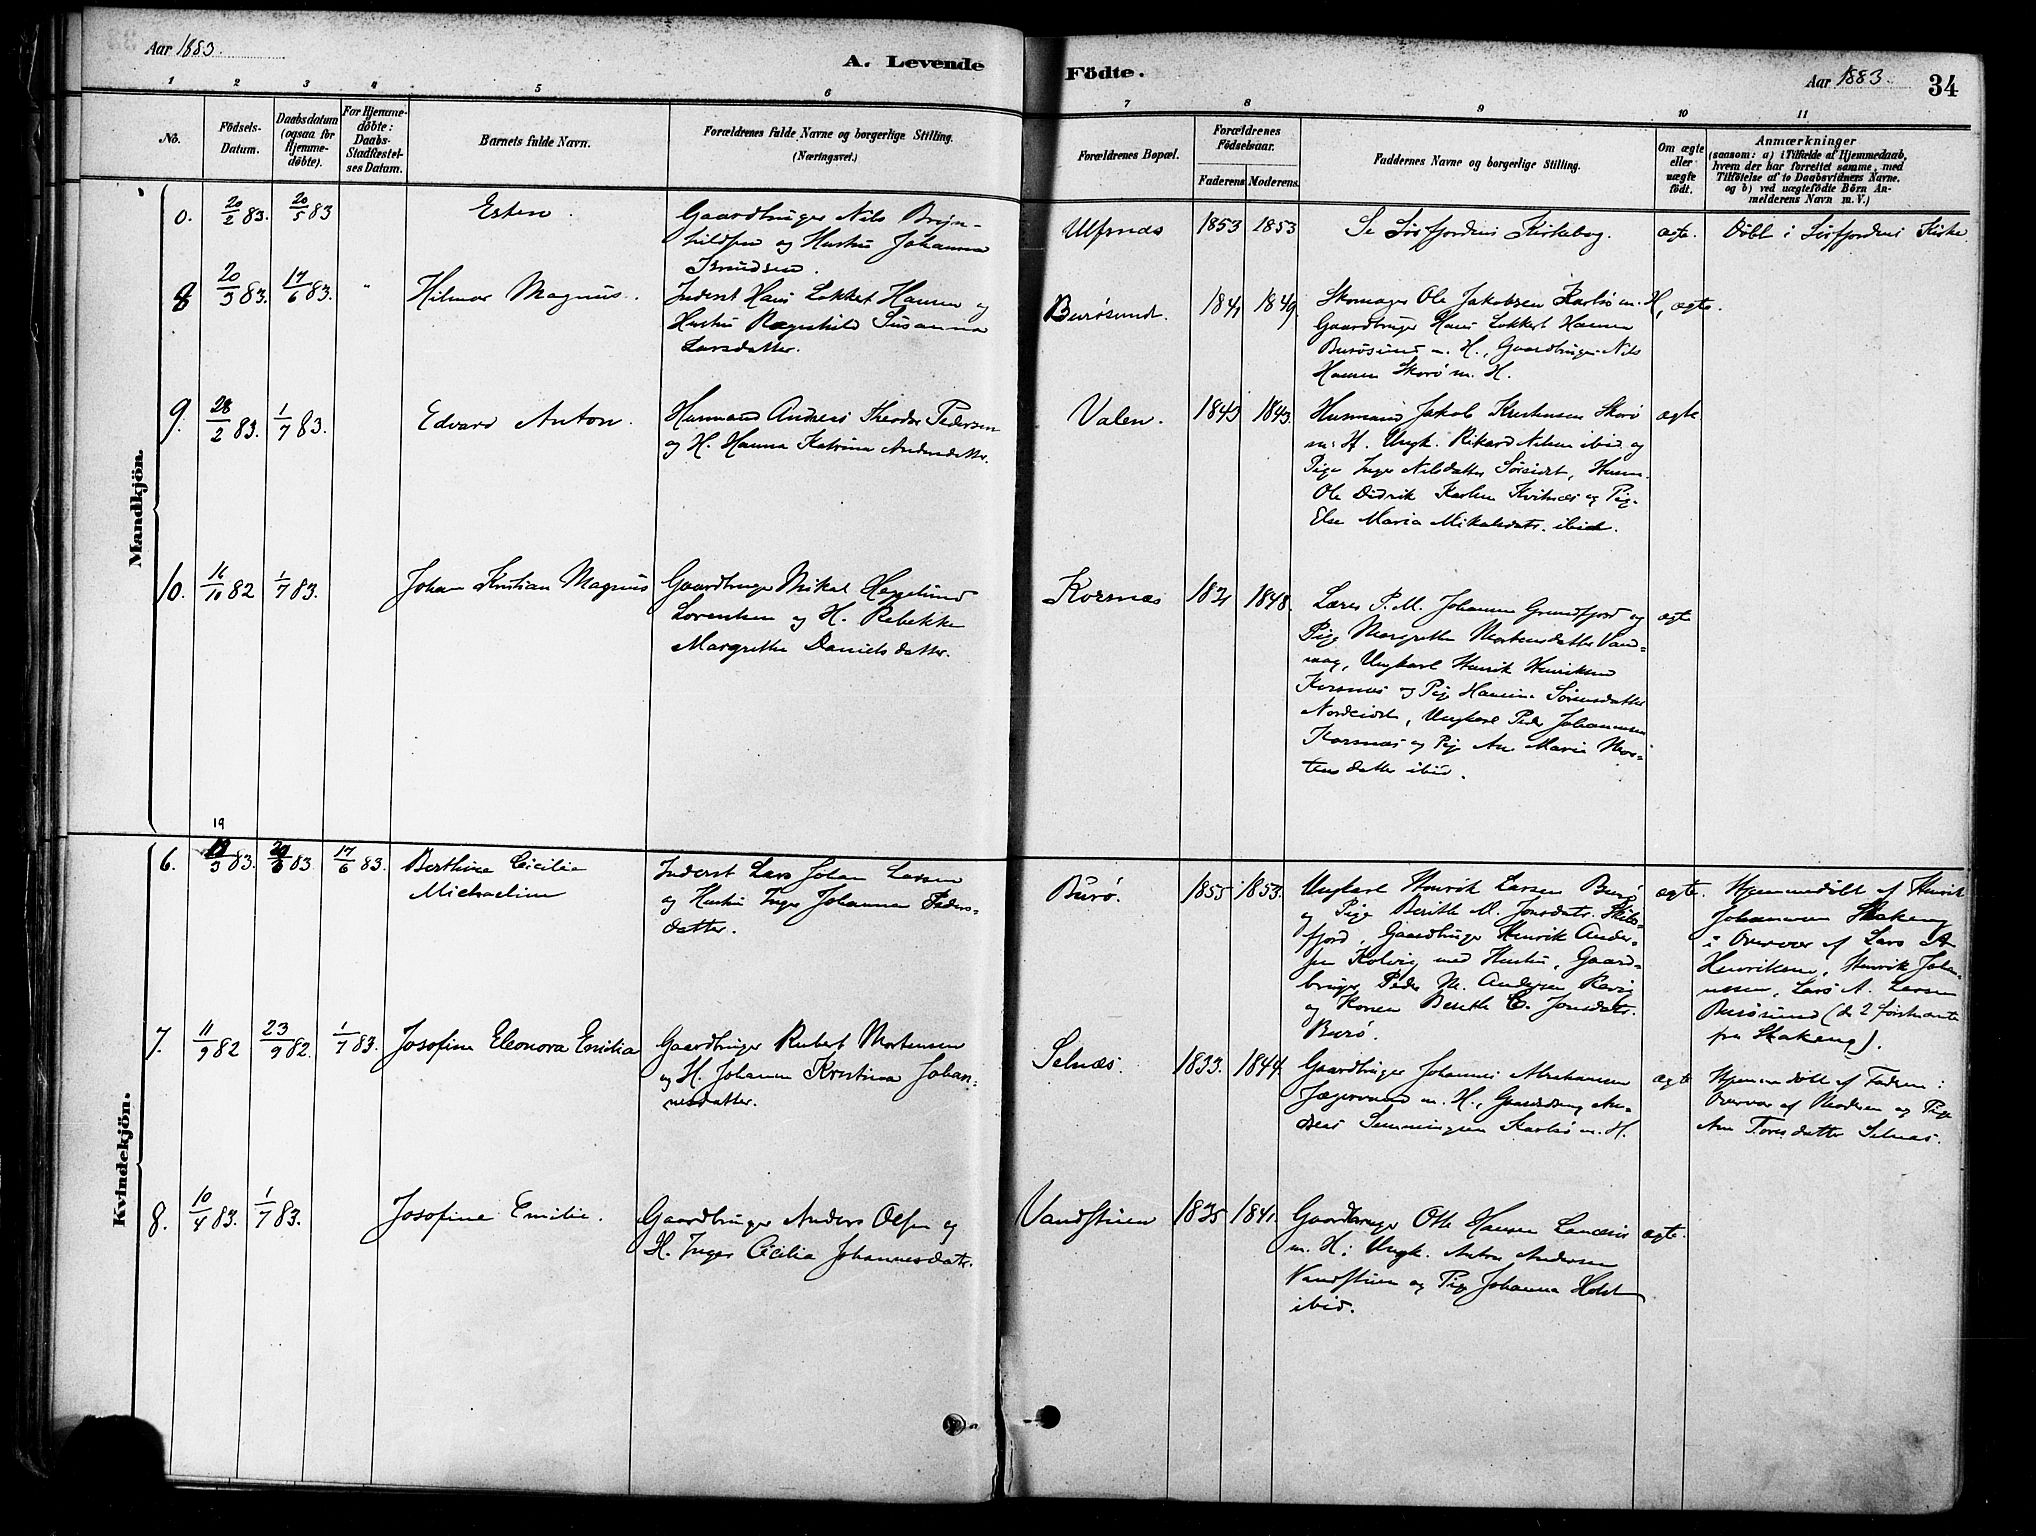 Aar 1883.
A. Levende
Födte.
Aar 1883.
34
1 2 3 4 5 6 7 8 9 10 11
No.
Födsels-
Datum.
Daabsdatum
(ogsaa for
Hjemme-
døbte).
For Hjemme-
døbte:
Daabs-
Stadfæstel-
ses Datum.
Barnets fulde Navn.
Forældrenes fulde Navne og borgerlige Stilling.
(Næringsvei.)
Forældrenes Bopæl.
Forældrenes
Födselsaar.
Faderens. Moderens.
Faddernes Navne og borgerlige Stilling.
Om ægte
eller
uægte
født.
Anmærkninger
(saasom: a) i Tilfælde af Hjemmedaab,
hvem der har forrettet samme, med
Tilføielse af to Daabsvidners Navne,
og b) ved uægtefödte Börn An-
melderens Navn m. V.)
Mandkjön.
0. 20/2 83. 20/5 83
Esten.
Gaardbruger Nils Bryn-
hildsen og Hustru Johanna
Knudsen.
Ulfsnæs
1853 1853
Se Sörfjordens Kirkebog.
ægte.
Döbt i Sörfjordens Kirke.
8 20/3 83. 17/6 83. "
Hilmar Magnus.
Inderst Hans Lokkert Hansen og
Hustru Ragnhild Susanna
Larsdatter.
Burösund.
1841 1849.
Skomager Ole Jakobsen Karlsö m. H,
Gaardbruger Hans Lokkert Hansen
Burösund m. H., Gaardbruger Nils
Hansen Skorö m. H.
ægte.
9. 28/2 83. 1/7 83.
Edvard Anton.
Husmand Andreas Theodor Pedersen
og H. Hanna Katrina Andersdatter.
Valen.
1843 1843.
Husmand Jakob Kristensen Skorö
m. H. Ungk. Rikard Nilsen ibid og
Pige Inger Nilsdatter Söreidet, Husm.
Ole Didrik Karlsen Kvitnæs og Pige
Else Maria Mikalsdatr. ibid.
ægte
10. 16/10 82 1/7 83.
Johan Kristian Magnus
Gaardbruger Mikal Heggelund
Lorentsen og H. Rebekka
Margrethe Daniels datter.
Korsnæs
1831 1848.
Lærer P. M. Johansen Grundfjord og
Pige Margrethe Mortensdatter Vand-
vaag, Ungkarl Henrik Henriksen
Korsnæs og Pige Hansine Sörensdatter
Nordeidet, Ungkarl Peder Johannesen
Korsnæs og Pige Ane Maria Mor-
tens datter ibid.
ægte
Kvindekjön.
19
6. /3 83. /6 83 17/6 83.
Berthine Cicilie
Michaeline
Inderst Lars Johan Larsen
og Hustru Inger Johanna Peders-
datter.
Burö.
1855 1853.
Ungkarl Henrik Larsen Burö
og Pige Berithe M. Jonsdatr. Skibs-
fjord, Gaardbruger Henrik Ander-
sen Kolvig med Hustru, Gaard-
bruger Peder M. Andersen
og Konen Berithe E. Jonsdatr.
Burö.
ægte.
Hjemmedöbt af Henrik
Johannesen Skakeng
i Overvær af Lars A
Henriksen, Henrik Joha-
nessen, Lars A. Larsen
Burösund (de 2 förstnævnte
fra Skakeng).
7. 11/9 82 23/9 82. 1/7 83.
Josofine Eleonora Emilia
Gaardbruger Rubert Mortensen
og H. Johanna Kristina Johan-
nesdatter.
Selnæs.
1833. 1844.
Gaardbruger Johannes Abrahamsen
Jægervand m. H., Gaardbrug. An-
ders Semmingsen Karlsö m. H.
ægte
Hjemmedöbt af Faderen i
Overvær af Moderen og Pige
Ane Toresdatter Selnæs.
8. 10/4 83. 1/7 83.
Josofine Emilie.
Gaardbruger Anders Olsen og
H. Inger Cicilia Johannesdatr.
Vandstuen
1835 1841.
Gaardbruger Otte Hansen
m. H; Ungk. Anton Andersen
Vandstuen og Pige Johanna Holst
ibid.
ægte.